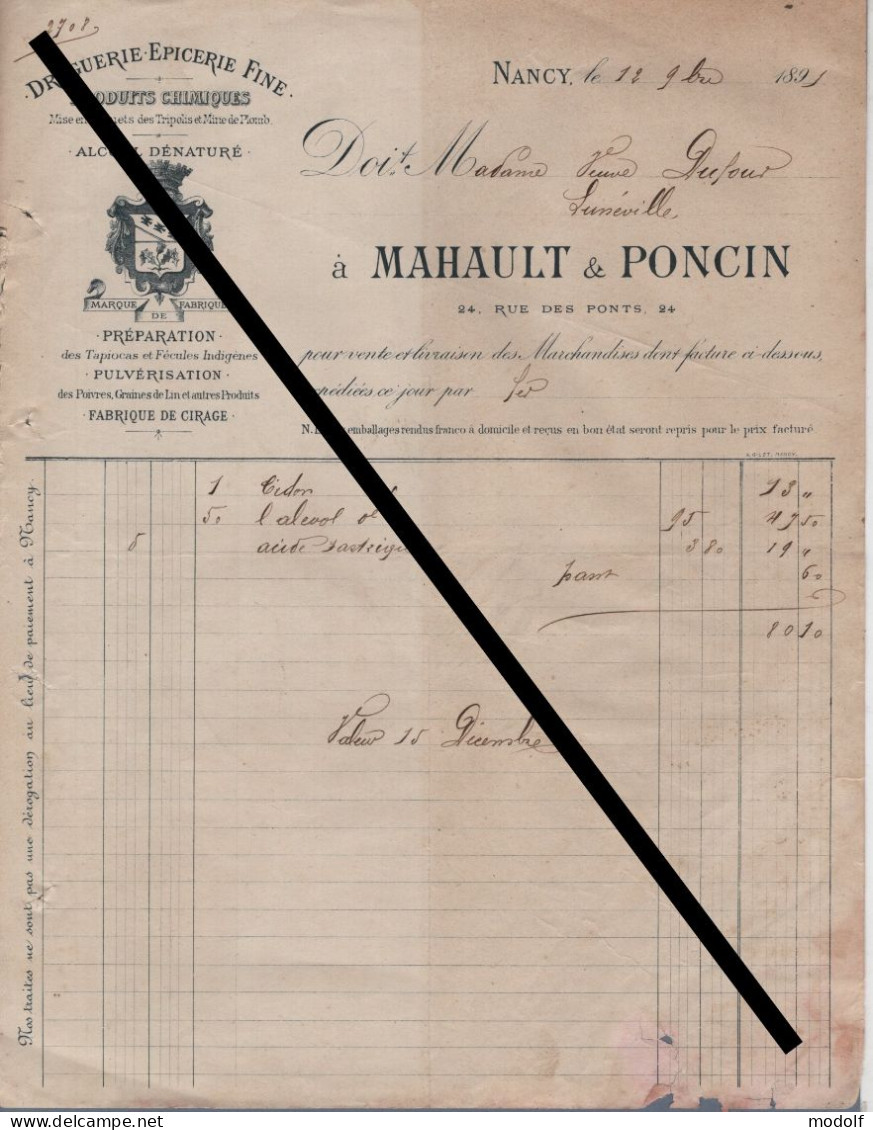 2708
DROGUERIE·EPICERIE FINE
PRODUITS CHIMIQUES
Mise en des Tripolis et Mine de Plomb.
·ALCOOL DÉNATURÉ·
MARQUE DE FABRIQUE
·PRÉPARATION·
des Tapiocas et Fécules Indigènes
·PULVÉRISATION·
des Poivres, Graines de Lin et autres Produits
·FABRIQUE DE CIRAGE·
NANCY, le 12 9bre 1891
Doit Madame Veuve Dufour
Lunéville
à MAHAULT & PONCIN
24, RUE DES PONTS, 24
pour vente et livraison des Marchandises dont facture ci-dessous,
expédiées ce jour par fer
N. emballages rendus franco à domicile et reçus en bon état seront repris pour le prix facturé
1 13 "
50 l 95 47 50
5 3 80 19 "
60
80 10
Valeur 15 Décembre
Nos traites ne sont pas une dérogation au lieu de paiement à Nancy.
modolf